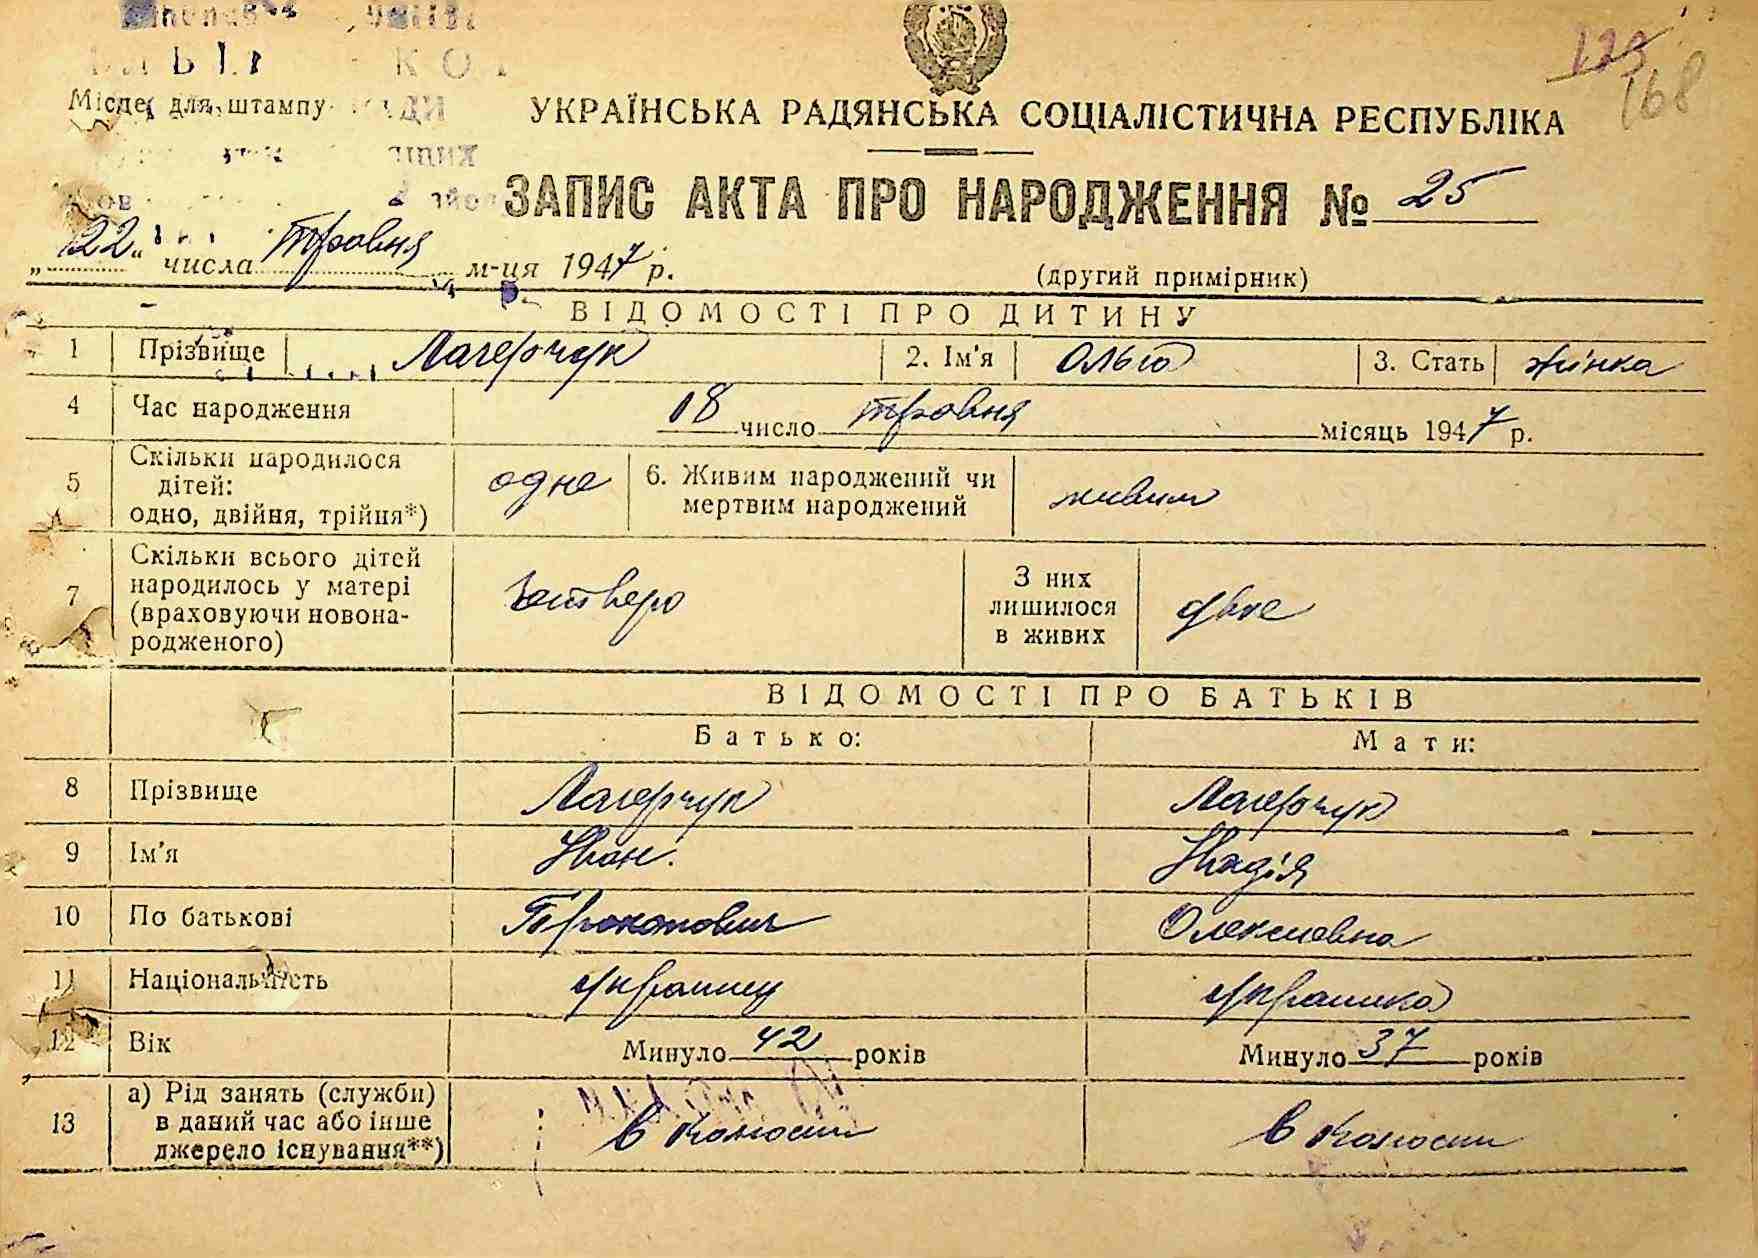 123
168
Місце для штампу
УКРАЇНСЬКА РАДЯНСЬКА СОЦІАЛІСТИЧНА РЕСПУБЛІКА
ЗАПИС АКТА ПРО НАРОДЖЕННЯ № 25
„22" числа Травня м-ця 1947 р.
(другий примірник)
ВІДОМОСТІ ПРО ДИТИНУ
1 Прізвище Лагерчук 2. Ім'я Ольга 3. Стать жінка
4 Час народження 18 число травня місяць 1947 р.
5 Скільки народилося дітей: одно, двійня, трійня*) одне 6. Живим народжений чи мертвим народжений живим
7 Скільки всього дітей народилось у матері (враховуючи новона-родженого) четверо З них лишилося в живих двое
ВІДОМОСТІ ПРО БАТЬКІВ
Батько: Мати:
8 Прізвище Лагерчук Лагерчук
9 Ім'я Іван. Надія
10 По батькові Прокопович Олексиевна
11 Національність украинец украинка
12 Вік Минуло 42 років Минуло 37 років
13 а) Рід занять (служби) в даний час або інше джерело існування**) в колгоспи в колгоспи